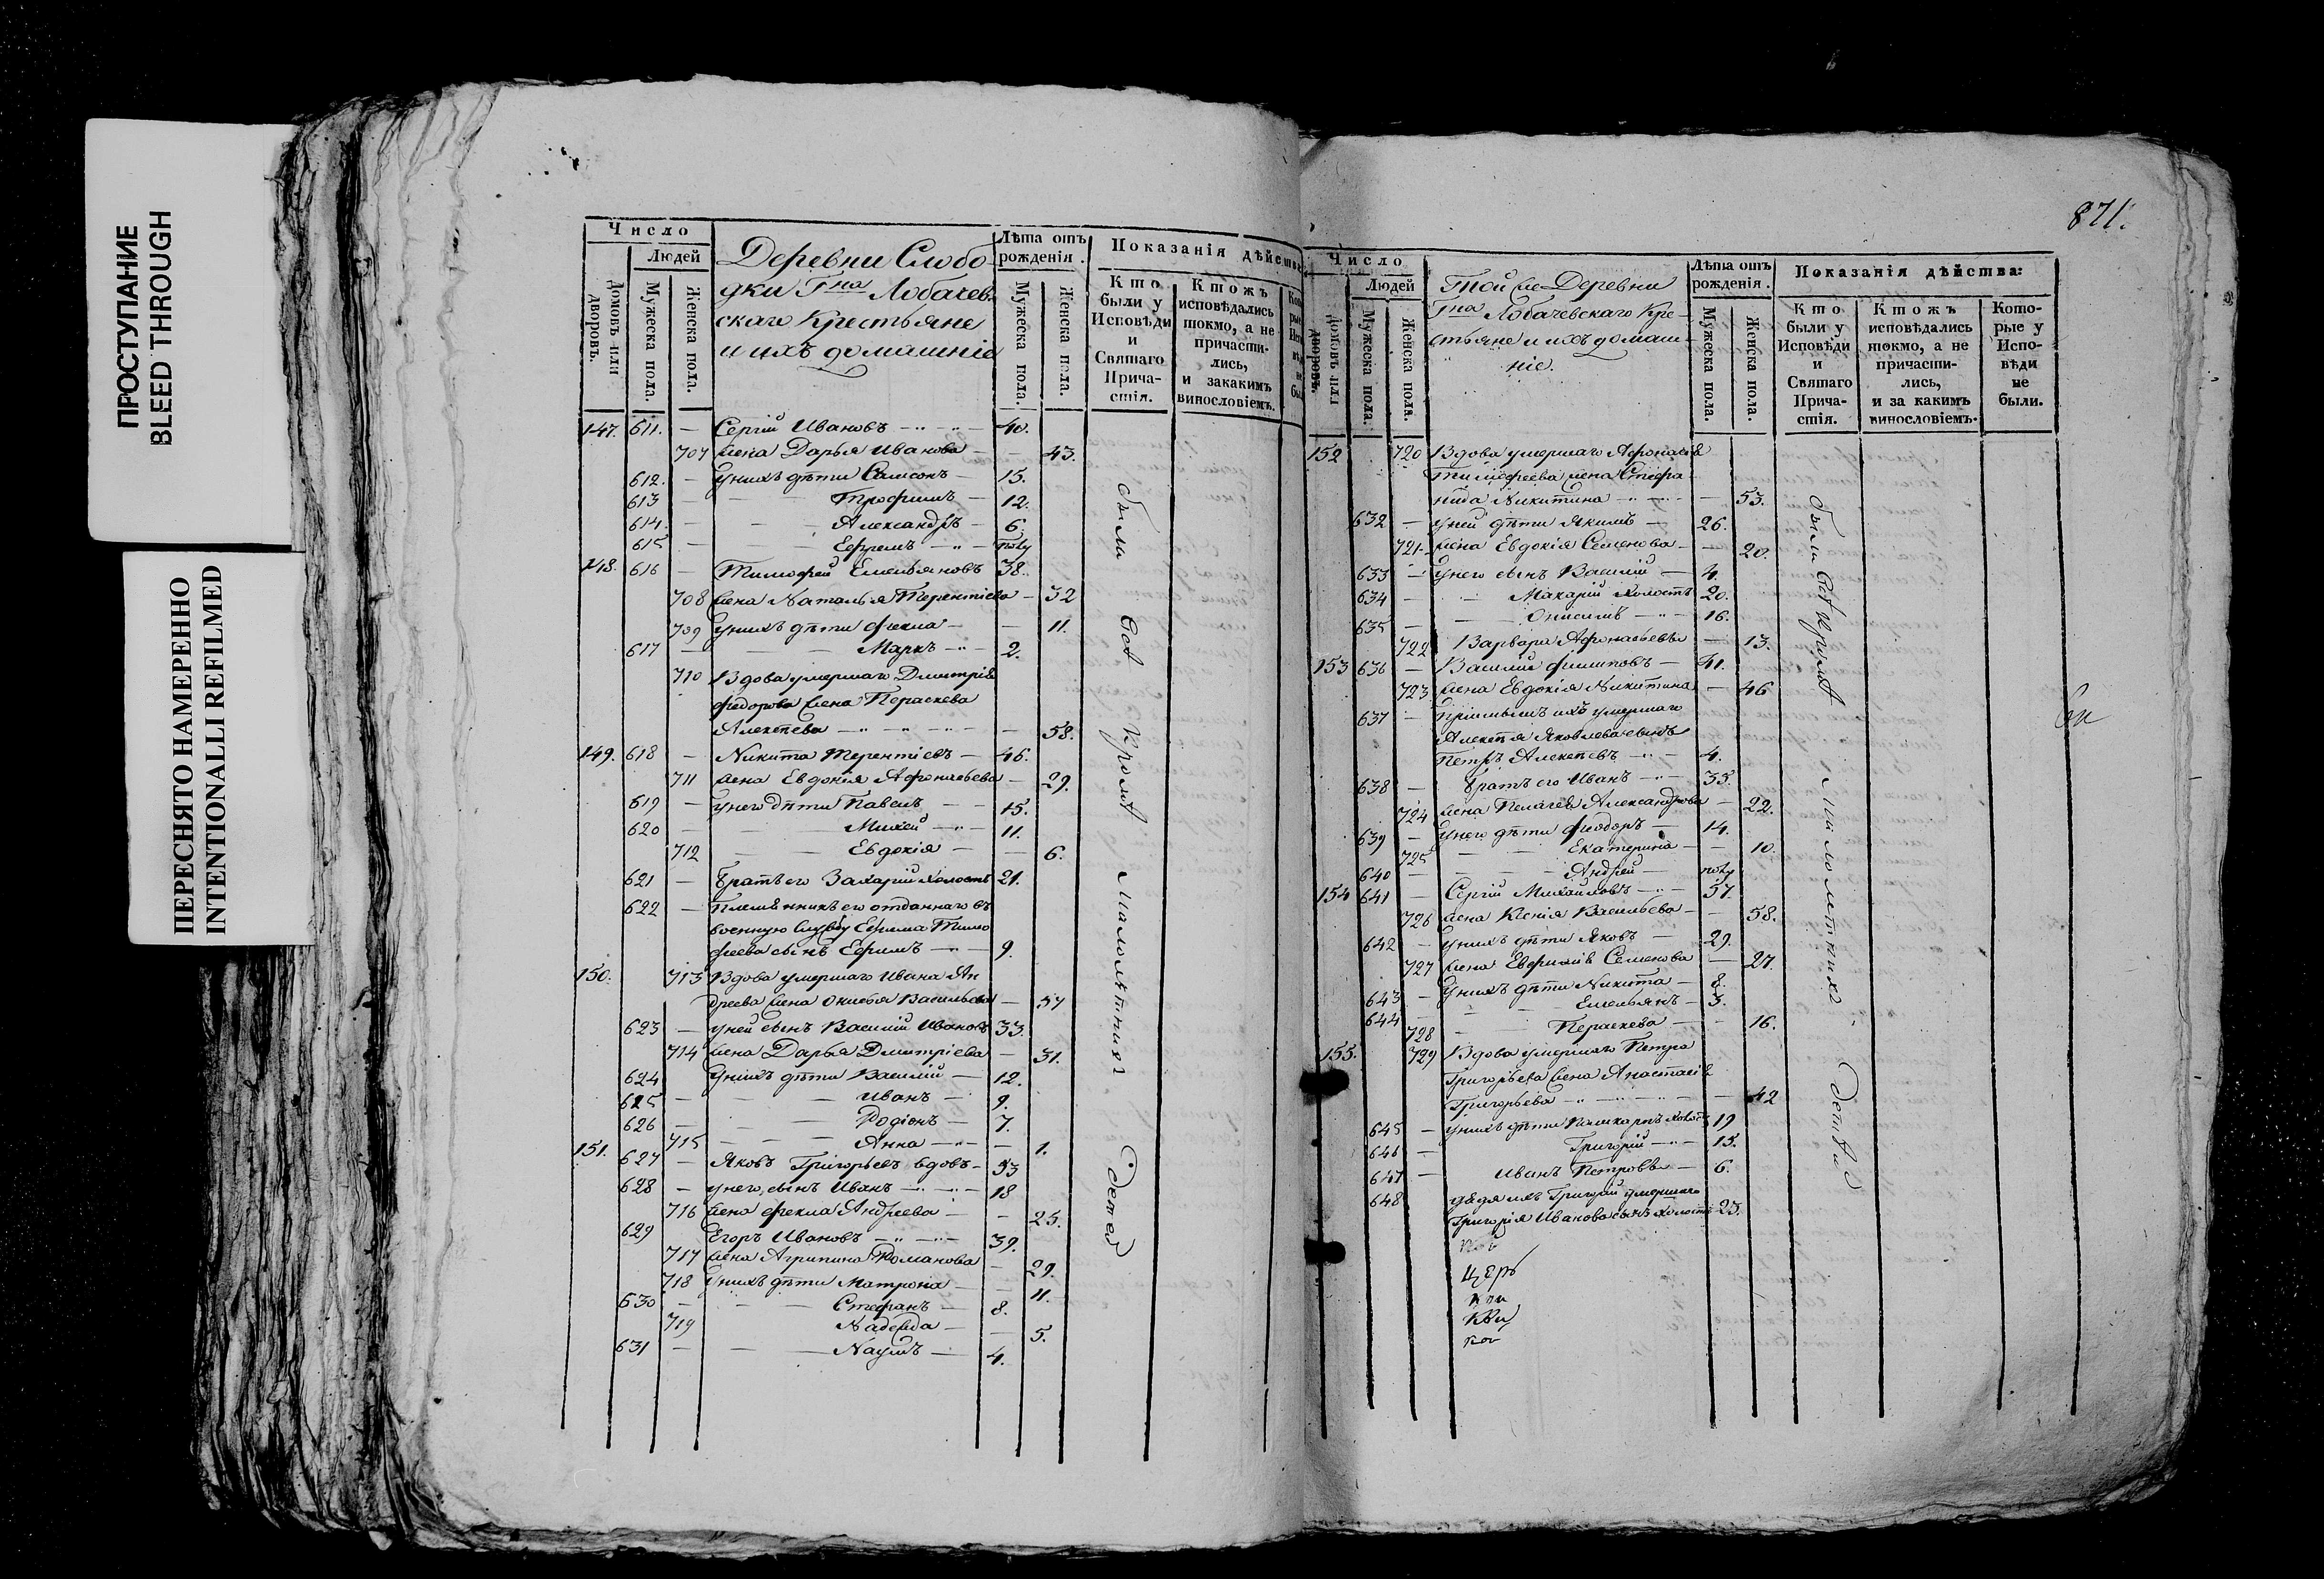 ПРОСТУПАНИЕ
BLEED THROUGH
ПЕРЕСНЯТО НАМЕРЕННО
INTENTIONALLI REFILMED
Число
Людей
Домовъ или дворовъ.
Мужеска пола.
Женска пола.
Деревни Слобо
дки Гна Лобачев
скаго Крестьяне
и ихъ домашніе
Лѣта отъ рожденія.
Мужеска пола.
Женска пола.
Показанія дѣйства
Кто были у Исповѣди и Святаго Причастія.
Ктожъ исповѣдались токмо, а не причастились, и закакимъ винословіемъ.
147. 611. — Сергій Ивановъ — 40.
707 жена Дарья Иванова — 43.
612. — у нихъ дѣти Самсонъ — 15.
613 — Трофимъ — 12.
614. — Александръ — 6.
615 — Ефремъ — полу
148. 616 — Тимофей Емельяновъ 38.
708 жена Наталья Терентіева — 32
709 у нихъ дѣти Фекла — 11.
617 — Маркъ — 2.
710 Вдова умершаго Дмитрія
Федорова жена Параскева
Алексѣева — 58.
149. 618 — Никита Терентіевъ — 46.
711 жена Евдокія Афонасьева — 29.
619 — у него дѣти Павелъ — 15.
620 — Михей — 11.
712 — Евдокія — 6.
621 — братъ его Захарій холостъ 21.
622 — племянникъ его отданнаго въ
военную службу Ефима Тимо
феева сынъ Ефимъ — 9.
150. 713 Вдова умершаго Ивана Ан
дреева жена Васильева — 57
623 — у ней сынъ Василій Ивановъ 33.
714 жена Дарья Дмитріева — 31.
624 у нихъ дѣти Василій — 12.
625 — Иванъ — 9.
626 — Родіонъ — 7.
715 — Анна — 1.
151. 627 — Яковъ Григорьевъ вдовъ — 53
628 — у него сынъ Иванъ — 18
716 жена Фекла Андреева — 25.
629 Егоръ Ивановъ — 39.
717 жена Агрипина Романова — 29.
718 у нихъ дѣти Матрона — 11.
630 — Стефанъ — 8.
719 Надежда — 5.
631 — Наумъ — 4.
были всѣ кромѣ малолѣтныхъ дѣтей
871.
Число
Людей
Домовъ или дворовъ.
Мужеска пола.
Женска пола.
Той же Деревни
Гна Лобачевскаго Кре-
стьяне и ихъ домаш-
ніе.
Лѣта отъ рожденія.
Мужеска пола.
Женска пола.
Показанія дѣйства:
Кто были у Исповѣди и Святаго Причастія.
Ктожъ исповѣдались токмо, а не причастились, и за какимъ винословіемъ.
Которые у Исповѣди не были.
152 720 Вдова умершаго Афонасія
Тимофеева жена Стефа
нида Никитина — 53.
632 — у ней дѣти Якимъ — 26.
721 — жена Евдокія Семенова — 20.
633 — у него сынъ Василій — 4.
634 — Макарій холостъ 20.
635 — Онисимъ — 16.
722 Варвара Афонасьевы — 13.
153 636 — Василій Филиповъ — 41.
723 жена Евдокія Никитина — 46
637 — пріимышъ ихъ умершаго
Алексѣя Яковлева сынъ
Петръ Алексѣевъ — 4.
638 — братъ его Иванъ — 35.
724 жена Пелагея Александрова — 22.
639 — у него дѣти Феодоръ — 14.
725 — Екатерина — 10.
640 — Андрей — полу
154 641 — Сергій Михайловъ — 57.
726 жена Ксенія Васильева — 58.
642 — у нихъ дѣти Яковъ — 29.
727 жена Евфимія Семенова — 27.
643 — у нихъ дѣти Никита — 8.
644 — Емельянъ — 3.
728 — Параскева — 16.
155. 729 Вдова умершаго Петра
Григорьева жена Анастасія
Григорьева — 42
645 — у нихъ дѣти Поликарпъ холостъ 19
646 — Григорій — 15.
647 — Иванъ Петровы — 6.
648 дядя ихъ Григорій умершаго
Григорія Иванова сынъ холостъ 23.
были всѣ кромѣ малолѣтнихъ дѣтей